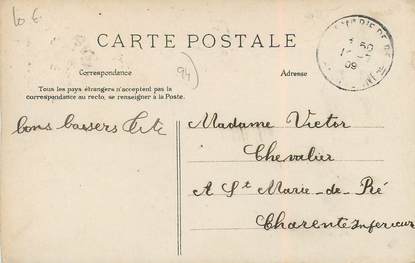 CARTE POSTALE
Correspondance
Adresse
Tous les pays étrangers n'acceptent pas la
correspondance au recto, se renseigner à la Poste.
94
bons baisers
Madame Victor
Chevalier
A Ste Marie-de-Ré
Charente Inferieure
09